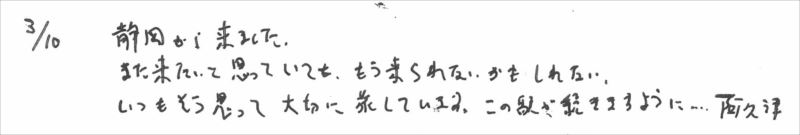 3/10 静岡から来ました。
また来たいと思っていても、もう来られないかもしれない。
いつもそう思って大切に旅しています。この駅が続きますように… 阿久津